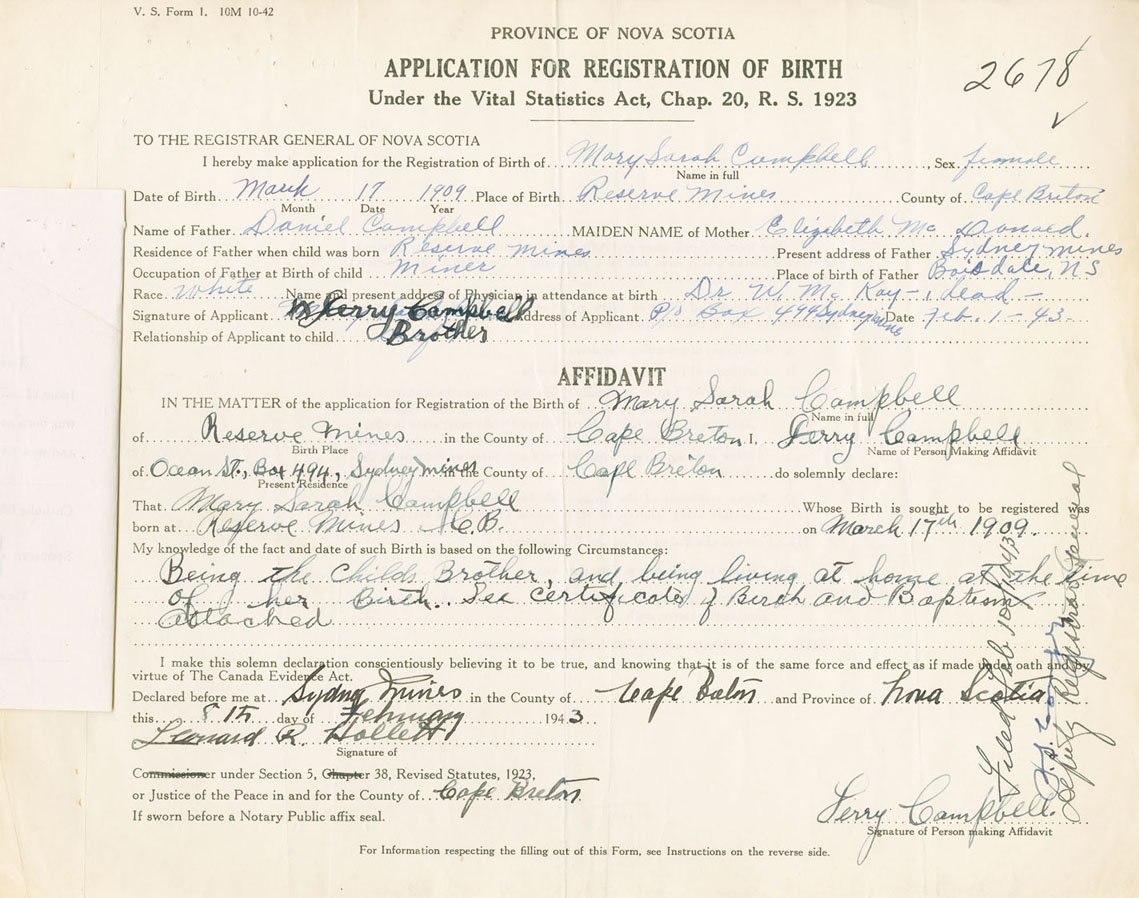 V. S. Form 1. 10M 10-42
PROVINCE OF NOVA SCOTIA
APPLICATION FOR REGISTRATION OF BIRTH
Under the Vital Statistics Act, Chap. 20, R. S. 1923
2678
TO THE REGISTRAR GENERAL OF NOVA SCOTIA
I hereby make application for the Registration of Birth of Mary Sarah Campbell, Sex female
Name in full
Date of Birth March 17 1909 Place of Birth Reserve Mines County of Cape Breton
Month Date Year
Name of Father Daniel Campbell MAIDEN NAME of Mother Elizabeth Mc Donald.
Residence of Father when child was born Reserve Mines Present address of Father Sydney Mines
Occupation of Father at Birth of child Miner Place of birth of Father Boisdale, N S
Race White Name and present address of Physician in attendance at birth Dr W. Mc Kay - dead -
Signature of Applicant Jerry Campbell Address of Applicant P/o Box 494 Sydney Mines Date Feb. 1 - 43.
Relationship of Applicant to child Brother
AFFIDAVIT
IN THE MATTER of the application for Registration of the Birth of Mary Sarah Campbell
Name in full
of Reserve Mines in the County of Cape Breton I, Jerry Campbell
Birth Place Name of Person Making Affidavit
of Ocean St., Box 494, Sydney Mines in the County of Cape Breton do solemnly declare:
Present Residence
That Mary Sarah Campbell Whose Birth is sought to be registered was
born at Reserve Mines C.B. on March 17th 1909.
My knowledge of the fact and date of such Birth is based on the following Circumstances:
Being the Childs Brother, and being living at home at the time
of her Birth. See certificate of Birth and Baptism
attached
I make this solemn declaration conscientiously believing it to be true, and knowing that it is of the same force and effect as if made under oath and by
virtue of The Canada Evidence Act.
Declared before me at Sydney Mines in the County of Cape Breton and Province of Nova Scotia
this 8th day of February 1943
Leonard R. Hollett
Signature of
Commissioner under Section 5, Chapter 38, Revised Statutes, 1923,
or Justice of the Peace in and for the County of Cape Breton
If sworn before a Notary Public affix seal.
Jerry Campbell
Signature of Person making Affidavit
For Information respecting the filling out of this Form, see Instructions on the reverse side.
Filed Feb 10/1943
Deputy Registrar General